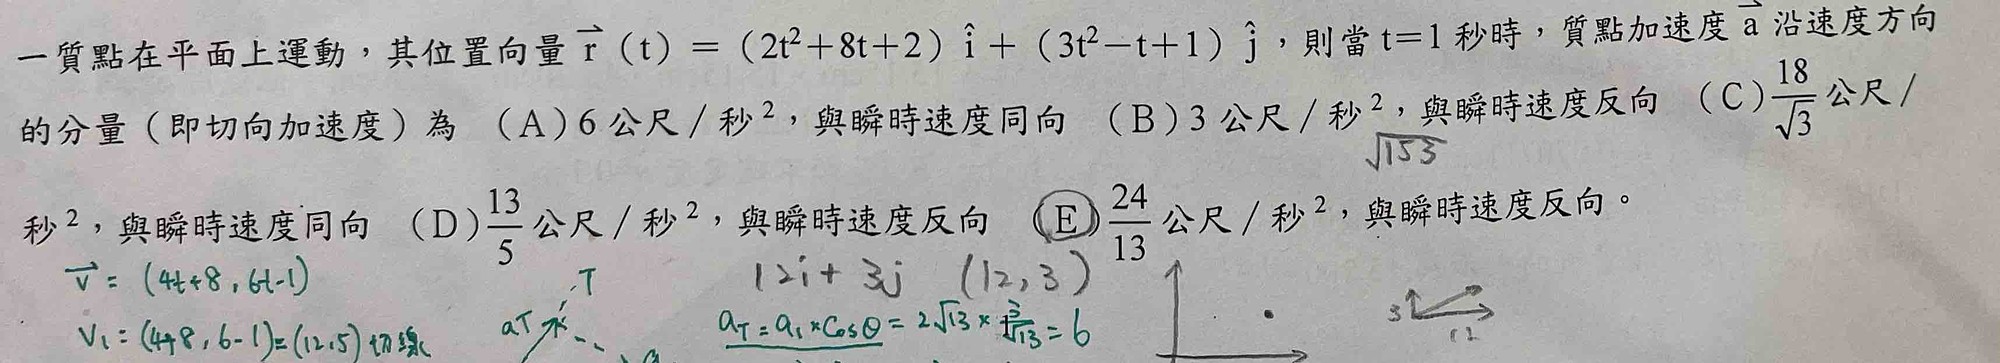 一質點在平面上運動，其位置向量 r⃗（t）＝（2t²＋8t＋2）î＋（3t²－t＋1）ĵ，則當 t＝1 秒時，質點加速度 a⃗ 沿速度方向
的分量（即切向加速度）為 （A）6 公尺／秒²，與瞬時速度同向 （B）3 公尺／秒²，與瞬時速度反向 （C）18/√3 公尺／
√153
秒²，與瞬時速度同向 （D）13/5 公尺／秒²，與瞬時速度反向 （E）24/13 公尺／秒²，與瞬時速度反向。
v⃗ = (4t+8, 6t-1) T 12i + 3j (12, 3)
V₁ = (4+8, 6-1) = (12,5) 切線 aT a_T = a₁×Cosθ = 2√13 × 3/√13 = 6 3 12